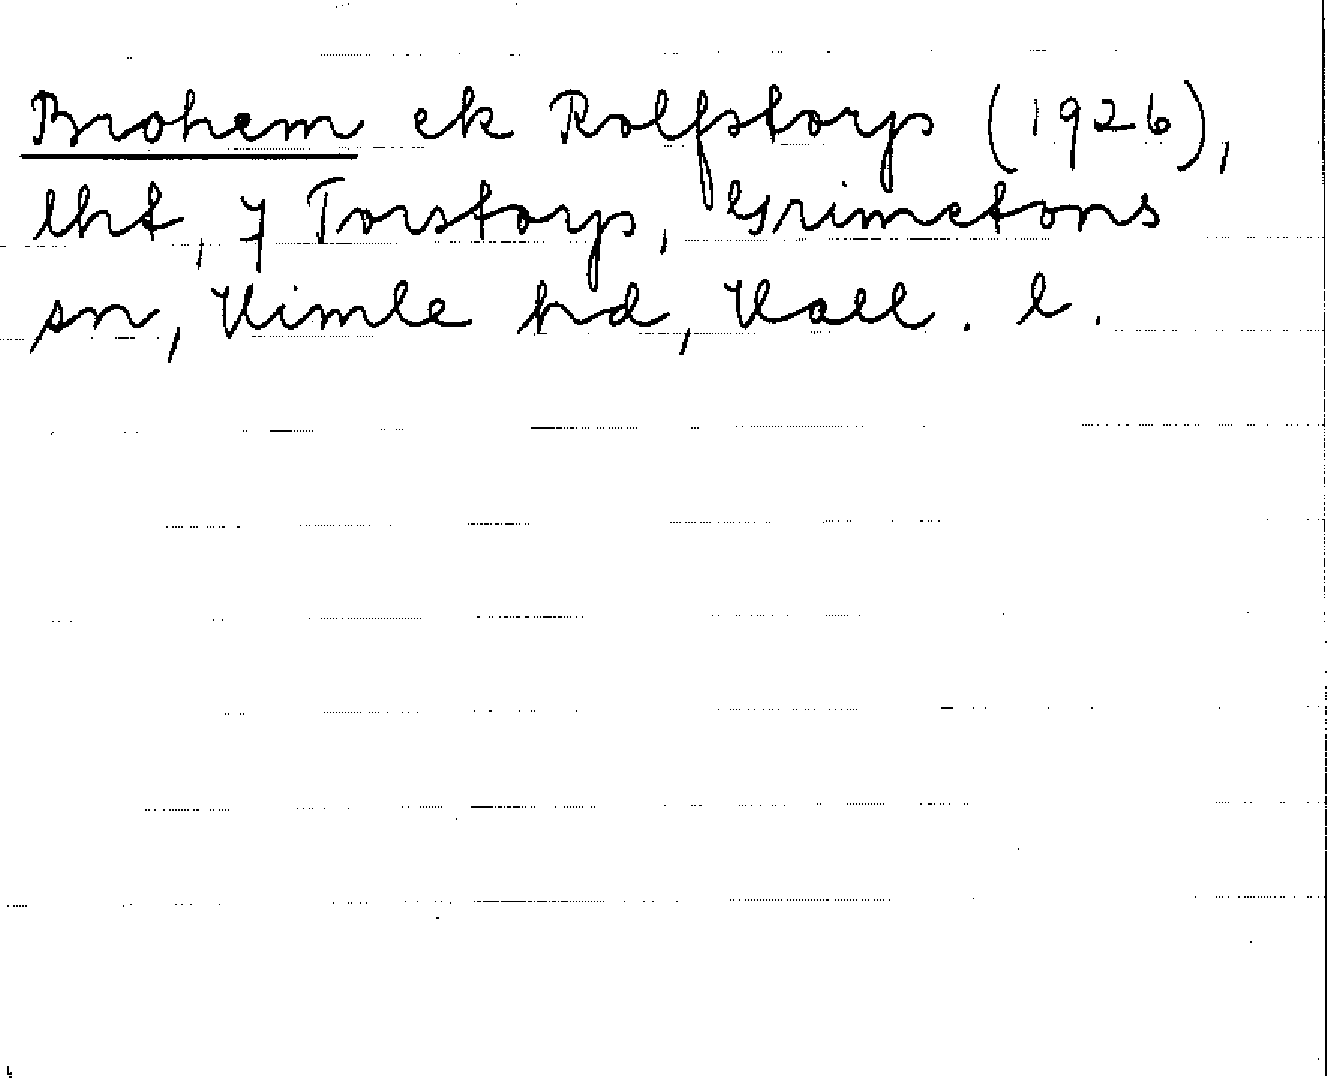 Brohem ek Rolfstorps (1926),
lht, 7 Torstorp, Grimetons
sn, Himle hd, Hall. l.